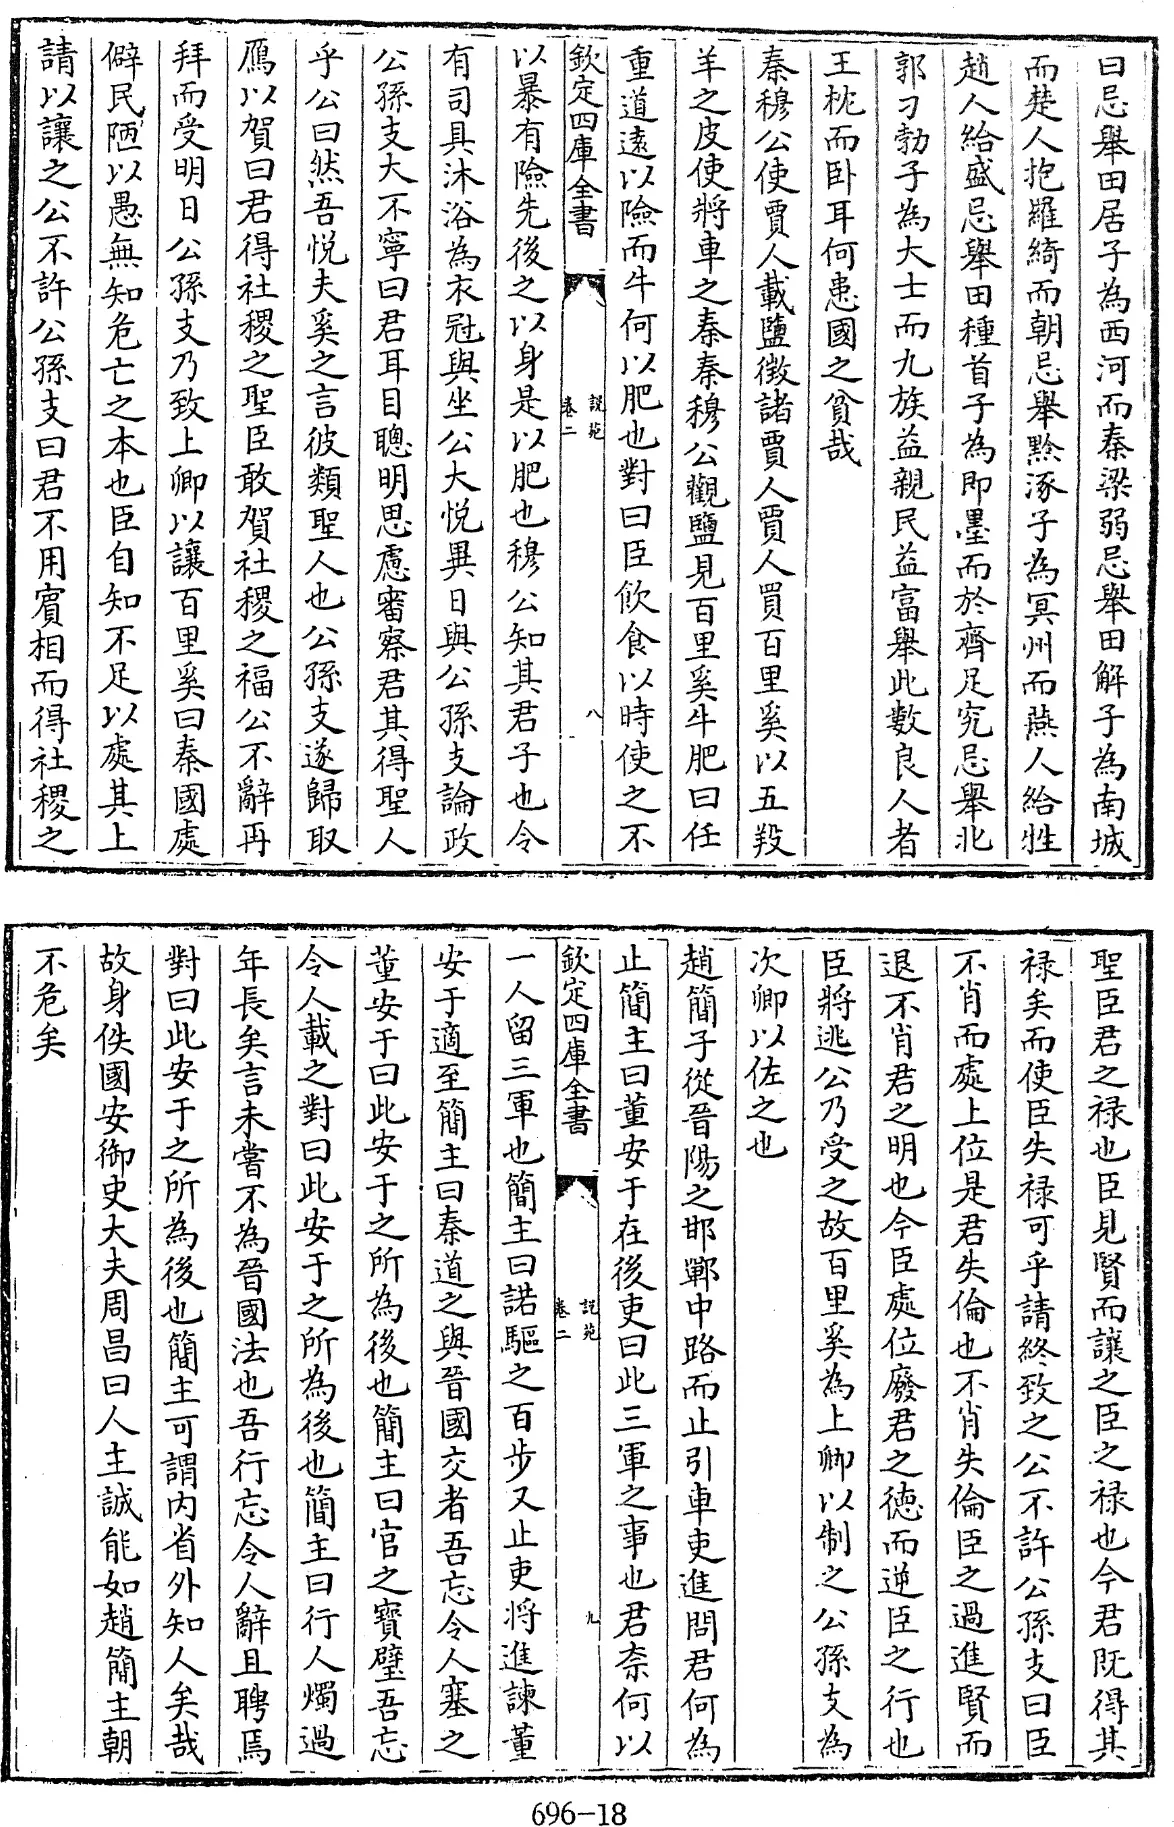 曰忌舉田居子為西河而秦梁弱忌舉田解子為南城
而楚人抱羅綺而朝忌舉黔涿子為冥州而燕人給牲
趙人給盛忌舉田種首子為即墨而於齊足究忌舉北
郭刁勃子為大士而九族益親民益富舉此數良人者
王枕而卧耳何患國之貧哉
秦穆公使賈人載鹽徴諸賈人賈人買百里奚以五羖
羊之皮使將車之秦秦穆公觀鹽見百里奚牛肥曰任
重道遠以險而牛何以肥也對曰臣飲食以時使之不
欽定四庫全書
說苑
卷二
八
以暴有險先後之以身是以肥也穆公知其君子也令
有司具沐浴為衣冠與坐公大悅異日與公孫支論政
公孫支大不寧曰君耳目聰明思慮審察君其得聖人
乎公曰然吾悅夫奚之言彼類聖人也公孫支遂歸取
鴈以賀曰君得社稷之聖臣敢賀社稷之福公不辭再
拜而受明日公孫支乃致上卿以讓百里奚曰秦國處
僻民陋以愚無知危亡之本也臣自知不足以處其上
請以讓之公不許公孫支曰君不用賔相而得社稷之
聖臣君之禄也臣見賢而讓之臣之禄也今君既得其
禄矣而使臣失禄可乎請終致之公不許公孫支曰臣
不肖而處上位是君失倫也不肖失倫臣之過進賢而
退不肖君之明也今臣處位廢君之徳而逆臣之行也
臣將逃公乃受之故百里奚為上卿以制之公孫支為
次卿以佐之也
趙簡子從晉陽之邯鄲中路而止引車吏進問君何為
止簡主曰董安于在後吏曰此三軍之事也君柰何以
欽定四庫全書
說苑
卷二
九
一人留三軍也簡主曰諾驅之百步又止吏将進諫董
安于適至簡主曰秦道之與晉國交者吾忘令人塞之
董安于曰此安于之所為後也簡主曰官之寳璧吾忘
令人載之對曰此安于之所為後也簡主曰行人燭過
年長矣言未嘗不為晉國法也吾行忘令人辭且聘焉
對曰此安于之所為後也簡主可謂内省外知人矣哉
故身佚國安御史大夫周昌曰人主誠能如趙簡主朝
不危矣
696-18